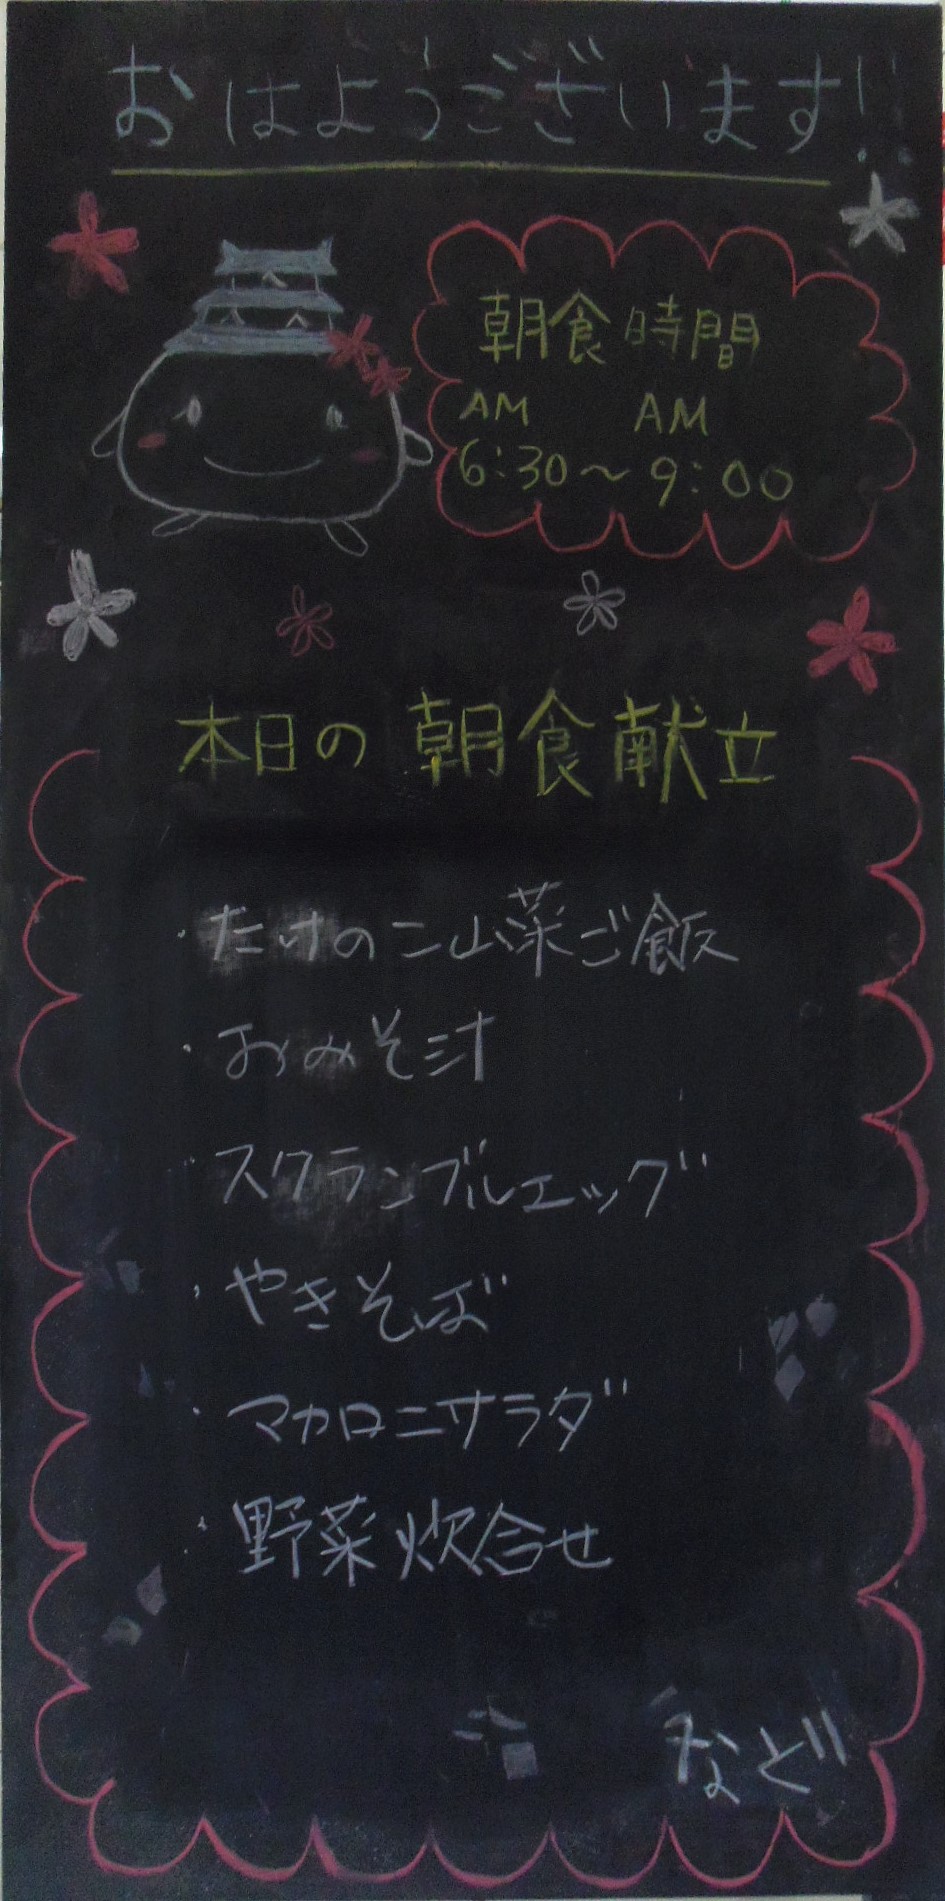 おはようございます!!
朝食時間
AM AM
6:30〜9:00
本日の朝食献立
・たけのこ山菜ご飯
・おみそ汁
・スクランブルエッグ
・やきそば
・マカロニサラダ
・野菜炊合せ
など